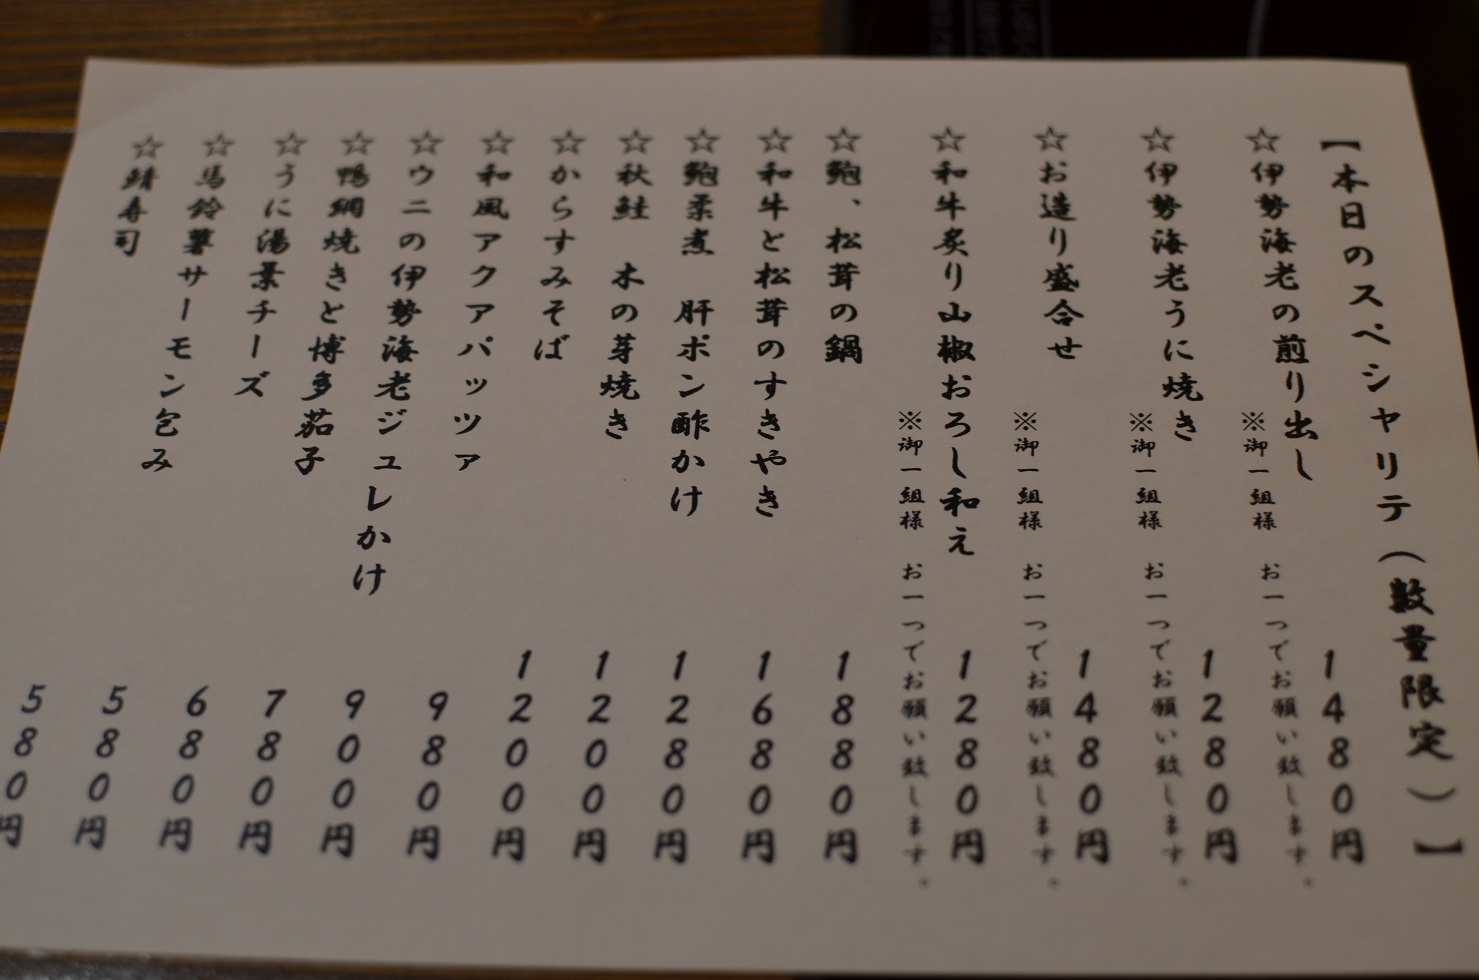 【本日のスペシャリテ（数量限定）】
☆伊勢海老の煎り出し 1480円
※御一組様 お一つでお願い致します。
☆伊勢海老うに焼き 1280円
※御一組様 お一つでお願い致します。
☆お造り盛合せ 1480円
※御一組様 お一つでお願い致します。
☆和牛炙り山椒おろし和え 1280円
※御一組様 お一つでお願い致します。
☆鮑、松茸の鍋 1880円
☆和牛と松茸のすきやき 1680円
☆鮑柔煮 肝ポン酢かけ 1280円
☆秋鮭 木の芽焼き 1200円
☆からすみそば 1200円
☆和風アクアパッツァ 980円
☆ウニの伊勢海老ジュレかけ 900円
☆鴨網焼きと博多茄子 780円
☆うに湯葉チーズ 680円
☆馬鈴薯サーモン包み 580円
☆鯖寿司 580円